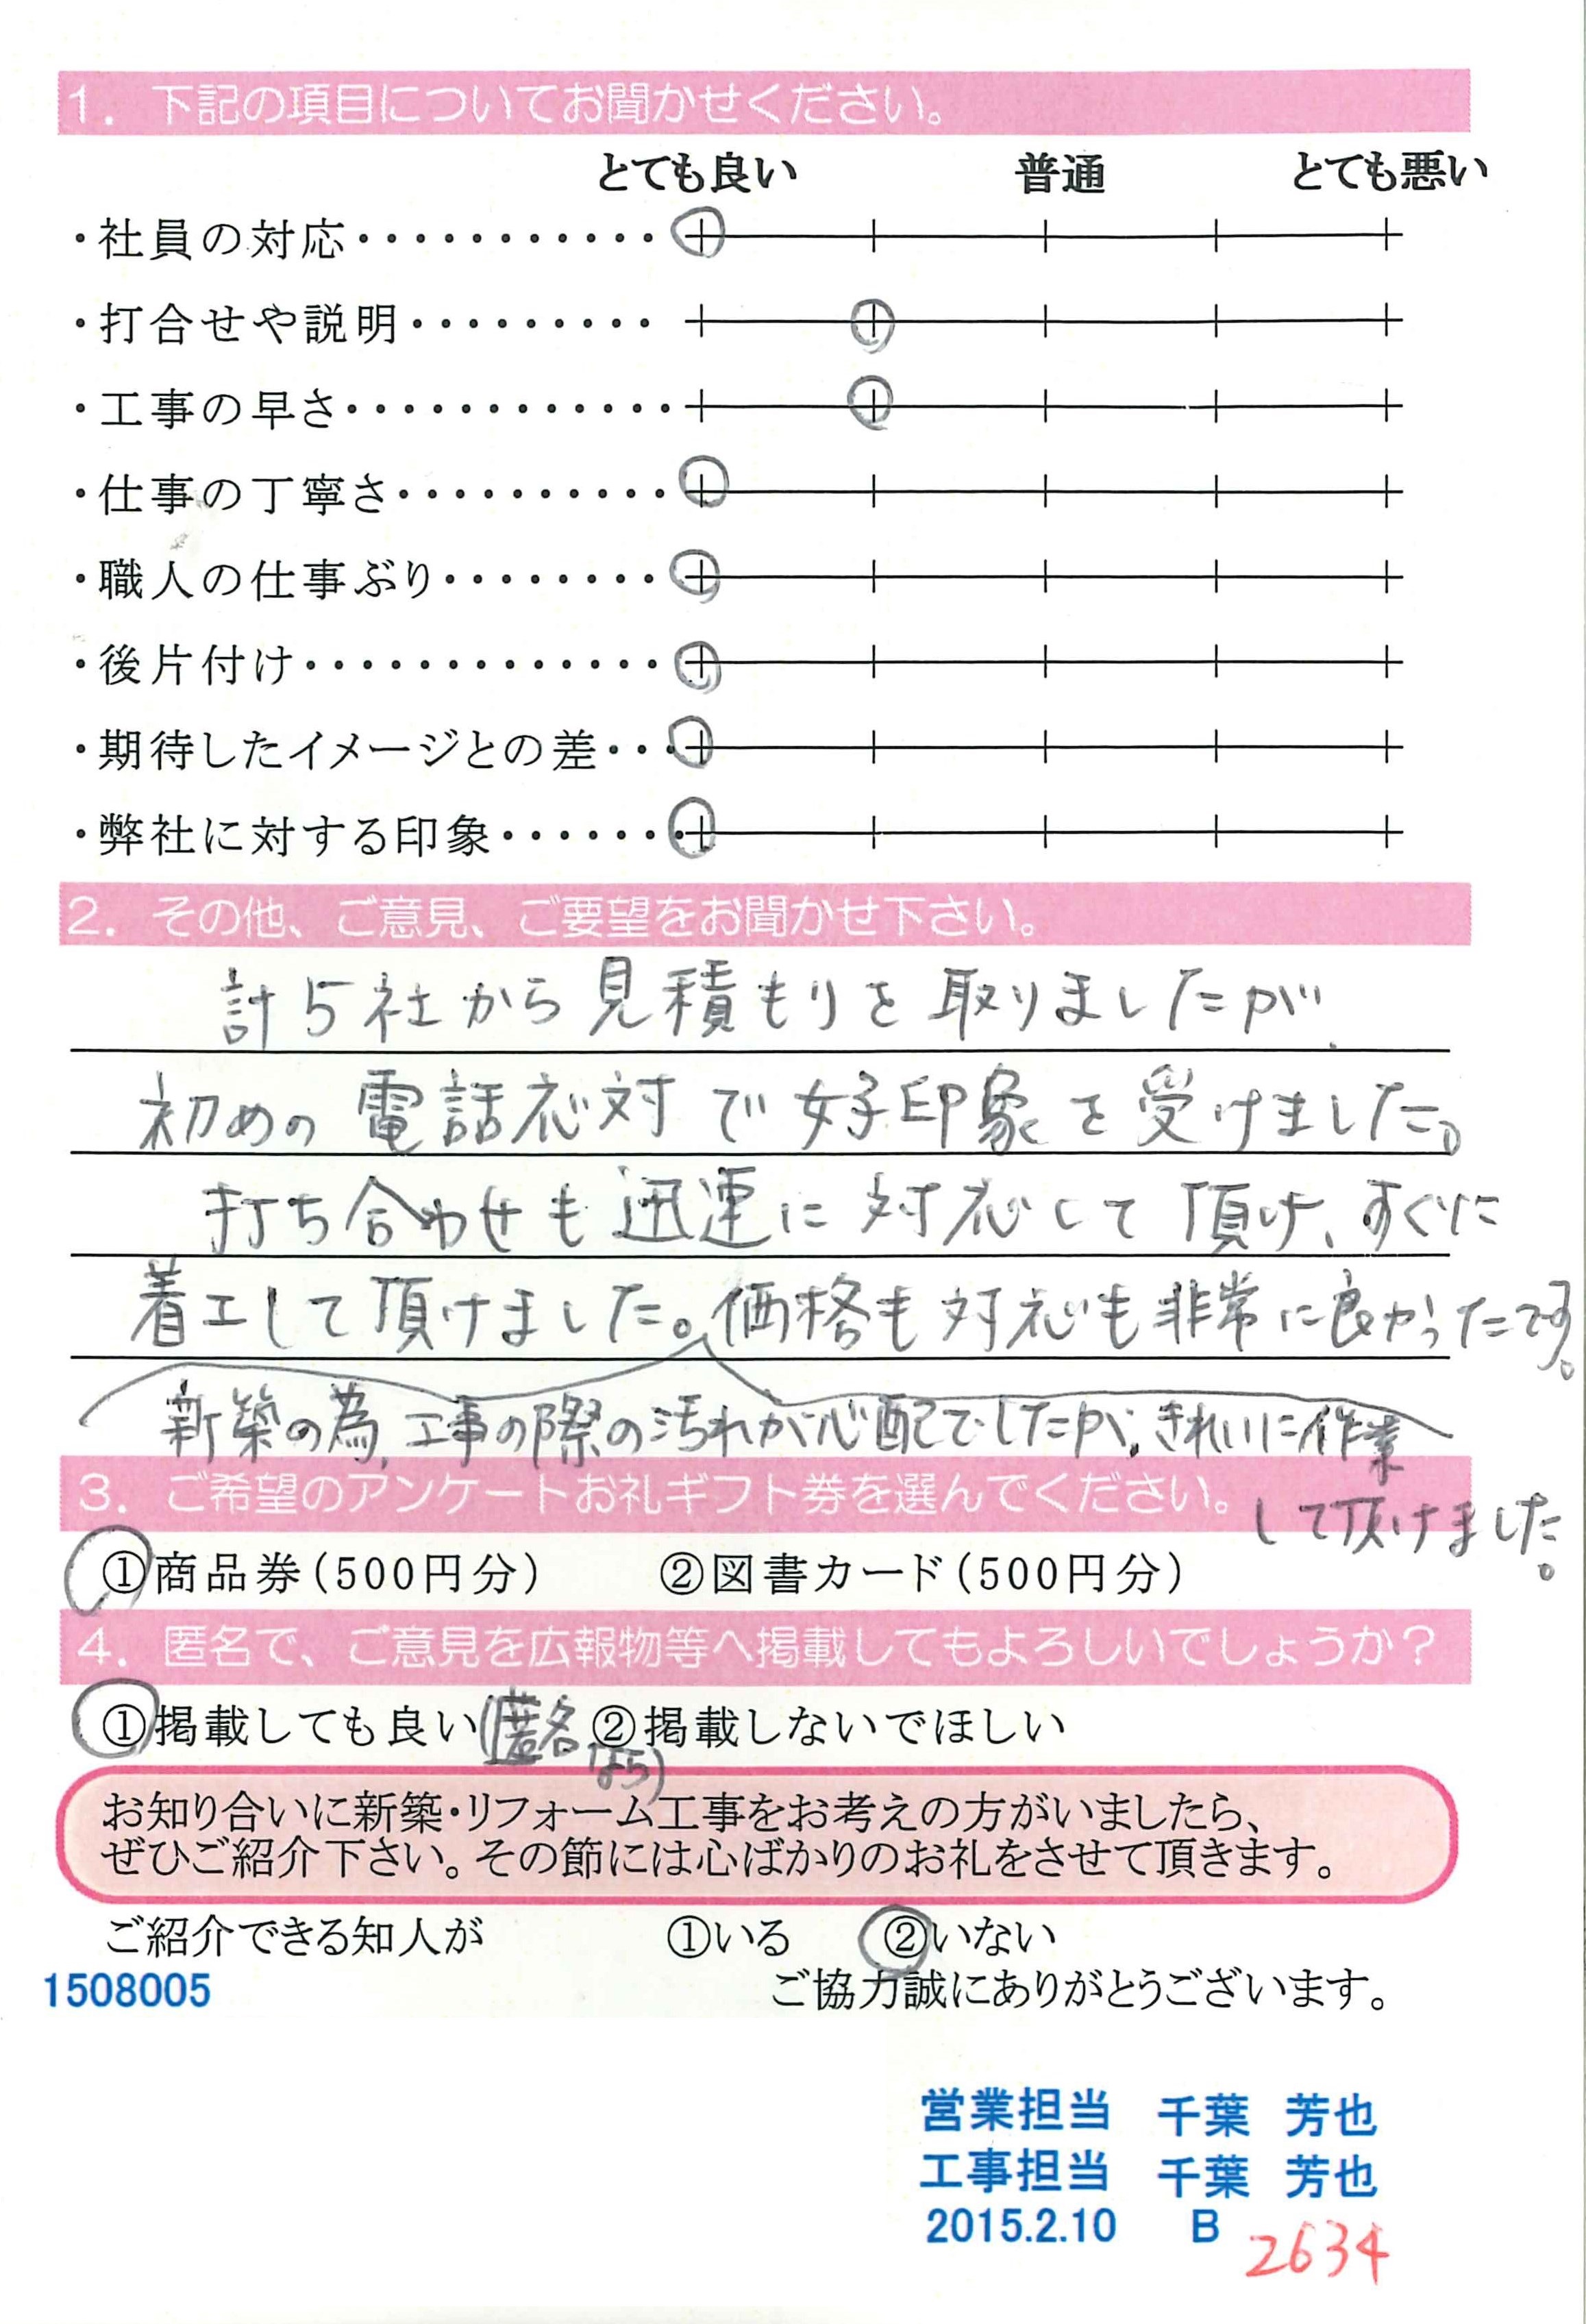 1. 下記の項目についてお聞かせください。
とても良い 普通 とても悪い
・社員の対応・・・・・・・・・・・
・打合せや説明・・・・・・・・・
・工事の早さ・・・・・・・・・・・・
・仕事の丁寧さ・・・・・・・・・・
・職人の仕事ぶり・・・・・・・・
・後片付け・・・・・・・・・・・・・
・期待したイメージとの差・・・
・弊社に対する印象・・・・・・・
2. その他、ご意見、ご要望をお聞かせ下さい。
計5社から見積もりを取りましたが、
初めの電話応対で好印象を受けました。
打ち合わせも迅速に対応して頂け、すぐに
着工して頂けました。価格も対応も非常に良かったです。
新築の為、工事の際の汚れが心配でしたが、きれいに作業
して頂けました。
3. ご希望のアンケートお礼ギフト券を選んでください。
①商品券(500円分) ②図書カード(500円分)
4. 匿名で、ご意見を広報物等へ掲載してもよろしいでしょうか?
①掲載しても良い(匿名なら) ②掲載しないでほしい
お知り合いに新築・リフォーム工事をお考えの方がいましたら、
ぜひご紹介下さい。その節には心ばかりのお礼をさせて頂きます。
ご紹介できる知人が ①いる ②いない
1508005 ご協力誠にありがとうございます。
営業担当 千葉 芳也
工事担当 千葉 芳也
2015.2.10 B 2634